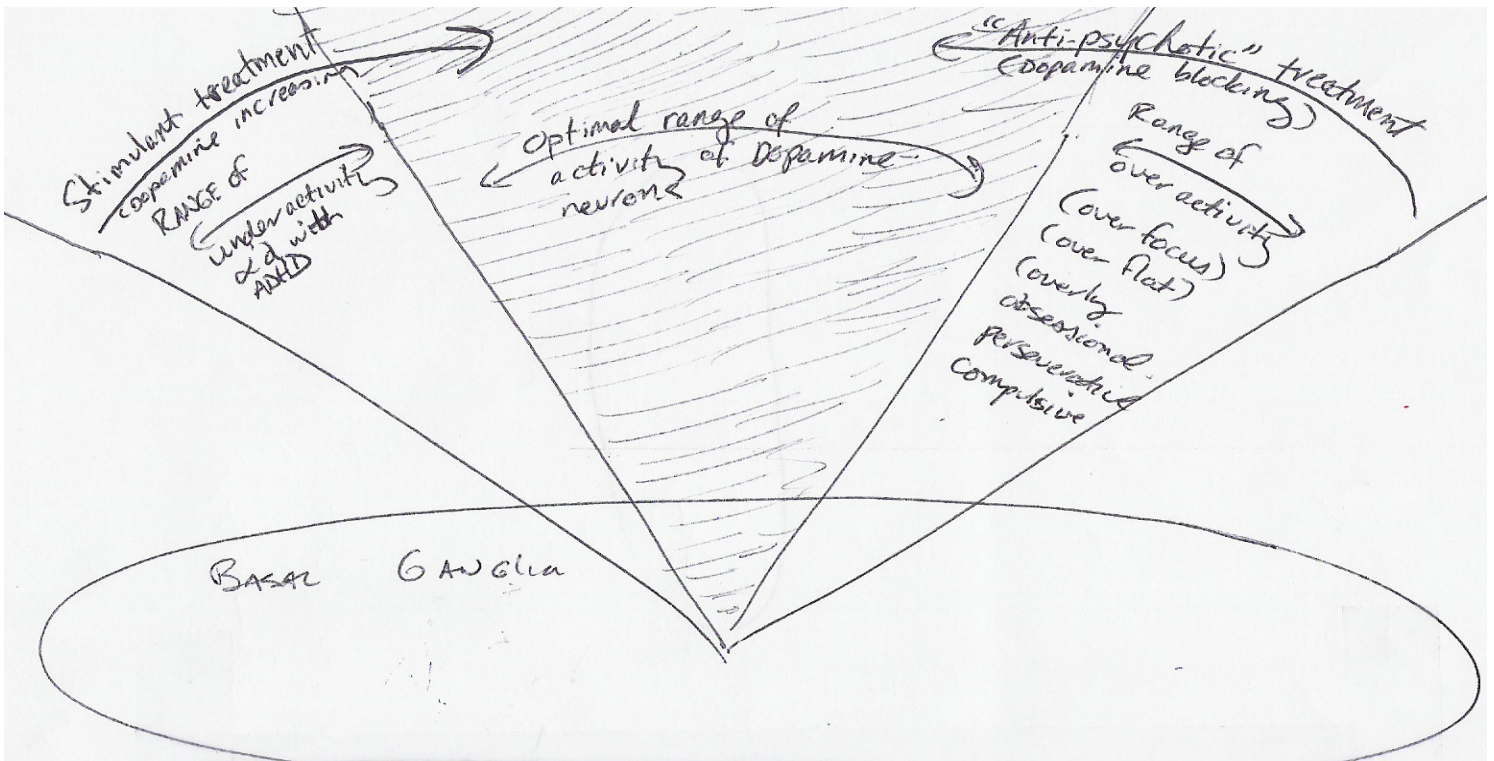 Stimulant treatment
(dopamine increasing
RANGE of
underactivity
with
ADHD
Optimal range of
activity of Dopamine-
neurons
"Anti-psychotic" treatment
(Dopamine blocking)
Range of
over activity
(over focus)
(over flat)
(overly
obsessional-
perseverative
compulsive
BASAL GANGlia